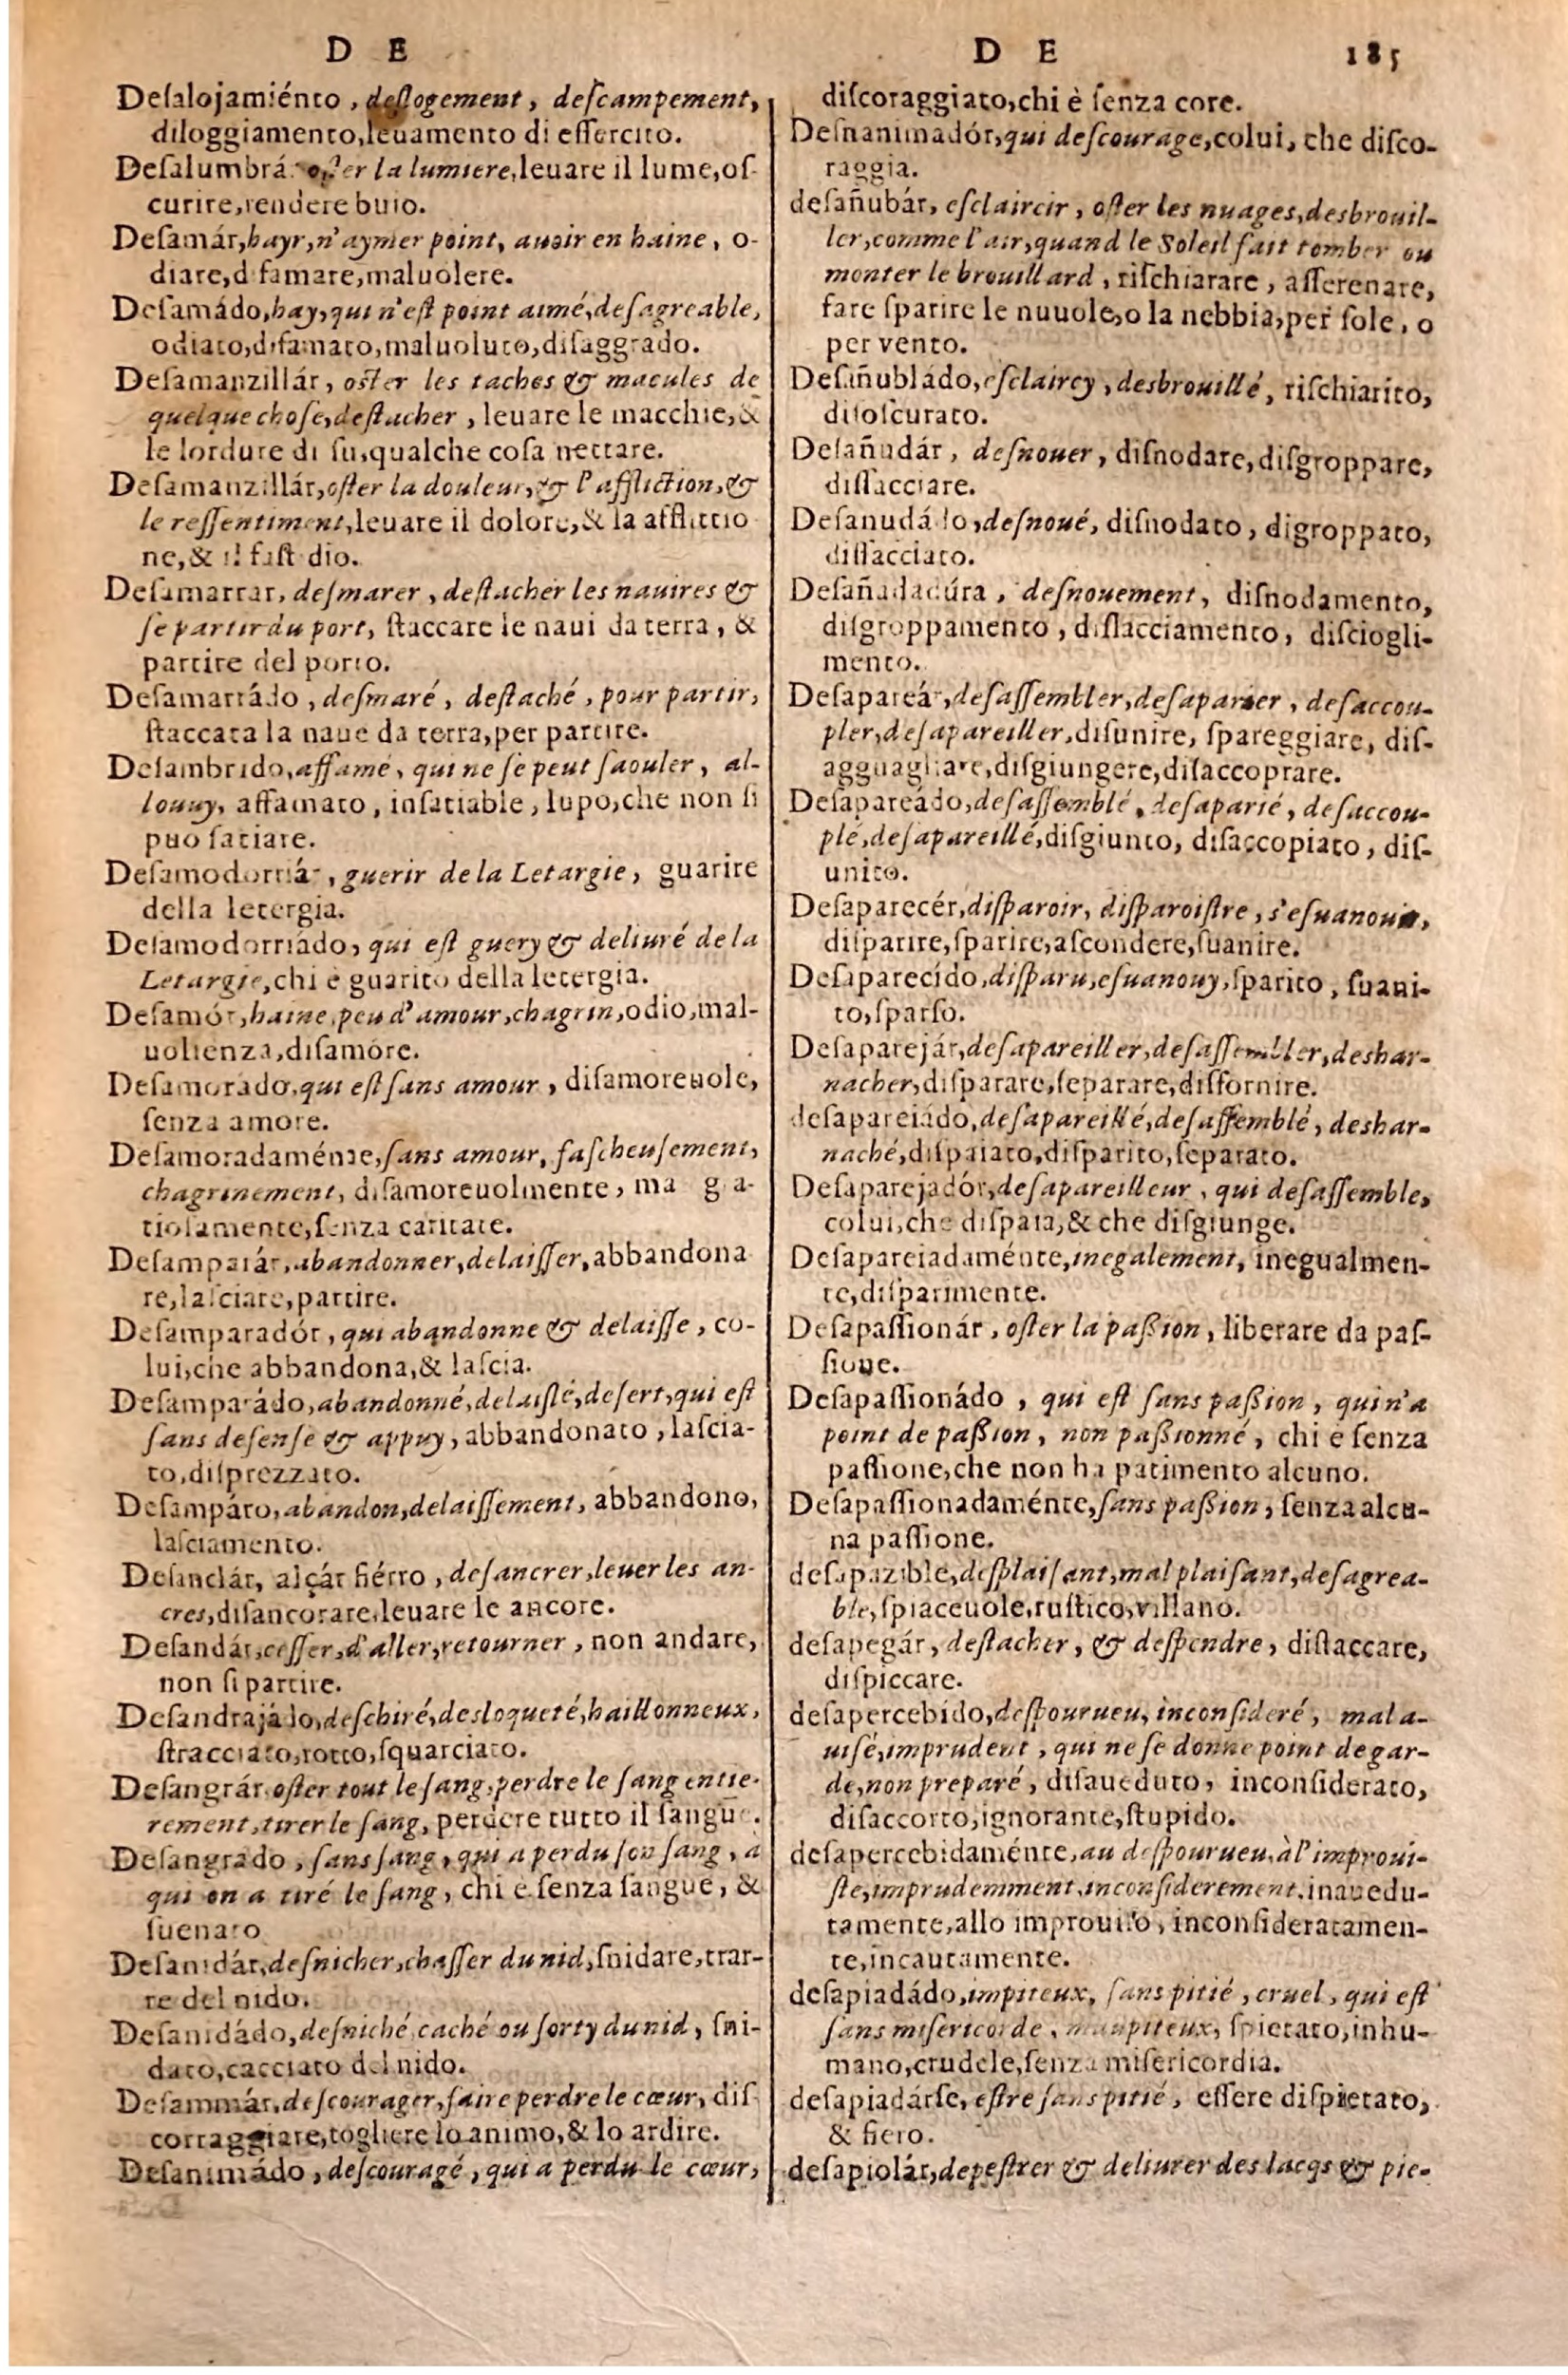 D E
Deſalojamiénto, deſlogement, deſcampement,
diloggiamento, leuamento di eſſercito.
Deſalumbrá oſter la lumiere, leuare il lume, oſ-
curire, rendere buio.
Deſamár, hayr, n'aymer point, auoir en haine, o-
diare, diſamare, maluolere.
Deſamádo, hay, qui n'eſt point aimé, deſagreable,
odiato, diſamato, maluoluto, diſaggrado.
Deſamanzillár, oſter les taches & macules de
quelque choſe, deſtacher, leuare le macchie, &
le lordure di ſu, qualche coſa nettare.
Deſamanzillár, oſter la douleur, & l'affliction, &
le reſſentiment, leuare il dolore, & la afflittio
ne, & il faſtidio.
Deſamarrar, deſmarer, deſtacher les nauires &
ſe partir du port, ſtaccare le naui da terra, &
partire del porto.
Deſamarrádo, deſmaré, deſtaché, pour partir,
ſtaccata la naue da terra, per partire.
Deſambrido, affamé, qui ne ſe peut ſaouler, al-
louuy, affamato, inſatiable, lupo, che non ſi
puo ſatiare.
Deſamodorriár, guerir de la Letargie, guarire
della letergia.
Deſamodorriádo, qui eſt guery & deliuré de la
Letargie, chi e guarito della letergia.
Deſamór, haine, peu d'amour, chagrin, odio, mal-
uolienza, diſamore.
Deſamorado, qui eſt ſans amour, diſamoreuole,
ſenza amore.
Deſamoradaménte, ſans amour, faſcheuſement,
chagrinement, diſamoreuolmente, ma
tioſamente, ſenza caritate.
Deſamparár, abandonner, delaiſſer, abbandona
re, laſciare, partire.
Deſamparadór, qui abandonne & delaiſſe, co-
lui, che abbandona, & laſcia.
Deſamparádo, abandonné, delaiſſé, deſert, qui eſt
ſans defenſe & appuy, abbandonato, laſcia-
to, diſprezzato.
Deſampáro, abandon, delaiſſement, abbandono,
laſciamento.
Deſanclár, alçár fiérro, deſancrer, leuer les an-
cres, diſancorare, leuare le ancore.
Deſandár, ceſſer, d'aller, retourner, non andare,
non ſi partire.
Deſandrajádo, deſchiré, desloqueté, haillonneux,
ſtracciato, rotto, ſquarciato.
Deſangrár oſter tout le ſang, perdre le ſang entie-
rement, tirer le ſang, perdere tutto il ſangue.
Deſangrado, ſans ſang, qui a perdu ſon ſang, à
qui on a tiré le ſang, chi e ſenza ſangue, &
ſuenato
Deſanidár, deſnicher, chaſſer du nid, ſnidare, trar-
re del nido.
Deſanidádo, deſniché, caché ou ſorty du nid, ſni-
dato, cacciato del nido.
Deſanimár, deſcourager, faire perdre le cœur, diſ
corraggiare, togliere lo animo, & lo ardire.
Deſanimádo, deſcouragé, qui a perdu le cœur,
D E 185
diſcoraggiato, chi è ſenza core.
Deſnanimadór, qui deſcourage, colui, che diſco-
raggia.
deſañubár, eſclaircir, oſter les nuages, desbrouil-
ler, comme l'air, quand le Soleil fait tomber ou
monter le brouillard, riſchiarare, aſſerenare,
fare ſparire le nuuole, o la nebbia, per ſole, o
per vento.
Deſañubládo, eſclaircy, desbrouillé, riſchiarito,
diſoſcurato.
Deſañudár, deſnouer, diſnodare, diſgroppare,
diſlacciare.
Deſanudádo, deſnoué, diſnodato, digroppato,
diſlacciato.
Deſañadadúra, deſnouement, diſnodamento,
diſgroppamento, diſlacciamento, diſciogli-
mento.
Deſapareár, deſaſſembler, deſaparier, deſaccou-
pler, deſapareiller, diſunire, ſpareggiare, diſ-
agguagliare, diſgiungere, diſaccoprare.
Deſapareádo, deſaſſemblé, deſaparié, deſaccou-
plé, deſapareillé, diſgiunto, diſaccopiato, diſ-
unito.
Deſaparecér, diſparoir, diſparoiſtre, s'eſuanouir,
diſparire, ſparire, aſcondere, ſuanire.
Deſaparecído, diſparu, eſuanouy, ſparito, ſuani-
to, ſparſo.
Deſaparejár, deſapareiller, deſaſſembler, deshar-
nacher, diſparare, ſeparare, disfornire.
deſapareiádo, deſapareillé, deſaſſemblé, deshar-
naché, diſpaiato, diſparito, ſeparato.
Deſaparejadór, deſapareilleur, qui deſaſſemble,
colui, che diſpaia, & che diſgiunge.
Deſapareiadaménte, inegalement, inegualmen-
te, diſparimente.
Deſapaſſionár, oſter la paßion, liberare da paſ-
ſione.
Deſapaſſionádo, qui eſt ſans paßion, qui n'a
point de paßion, non paßionné, chi e ſenza
paſſione, che non ha patimento alcuno.
Deſapaſſionadaménte, ſans paßion, ſenza alcu-
na paſſione.
deſapazible, deſplaiſant, mal plaiſant, deſagrea-
ble, ſpiaceuole, ruſtico, villano.
deſapegár, deſtacher, & deſpendre, diſtaccare,
diſpiccare.
deſapercebído, deſpourueu, inconſideré, mal a-
uiſé, imprudent, qui ne ſe donne point de gar-
de, non preparé, diſaueduto, inconſiderato,
diſaccorto, ignorante, ſtupido.
deſapercebidaménte, au deſpourueu, à l'improui-
ſte, imprudemment, inconſiderement, inauedu-
tamente, allo improuiſo, inconſideratamen-
te, incautamente.
deſapiadádo, impiteux, ſans pitié, cruel, qui eſt
ſans miſericorde, maupiteux, ſpietato, inhu-
mano, crudele, ſenza miſericordia.
deſapiadárſe, eſtre ſans pitié, eſſere diſpietato,
& fiero.
deſapiolár, depeſtrer & deliurer des lacqs & pie-